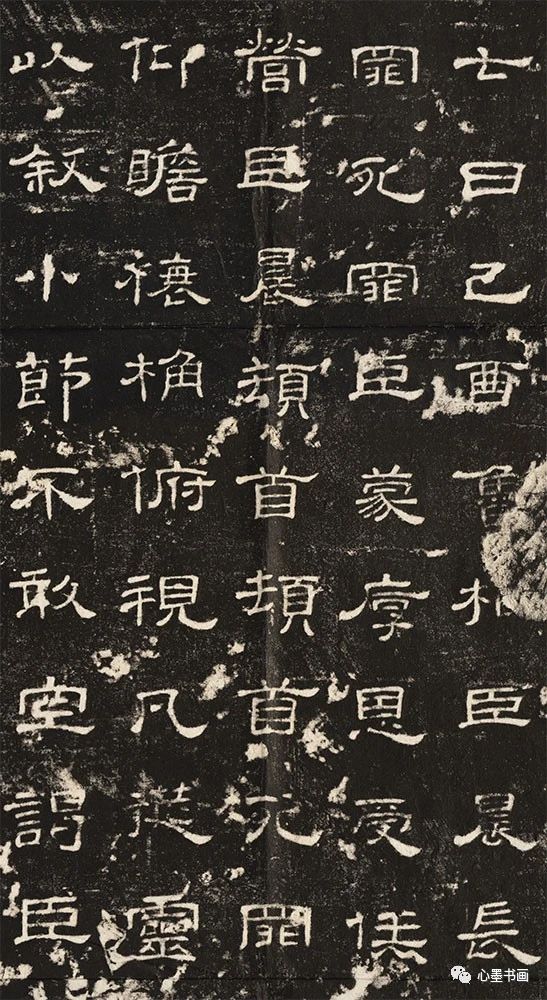 七日己酉魯相臣晨長
罪死罪臣蒙厚恩受任
營臣晨頓首頓首死罪
仰瞻榱桷俯視几筵靈
以叙小節不敢空謁臣
心墨书画